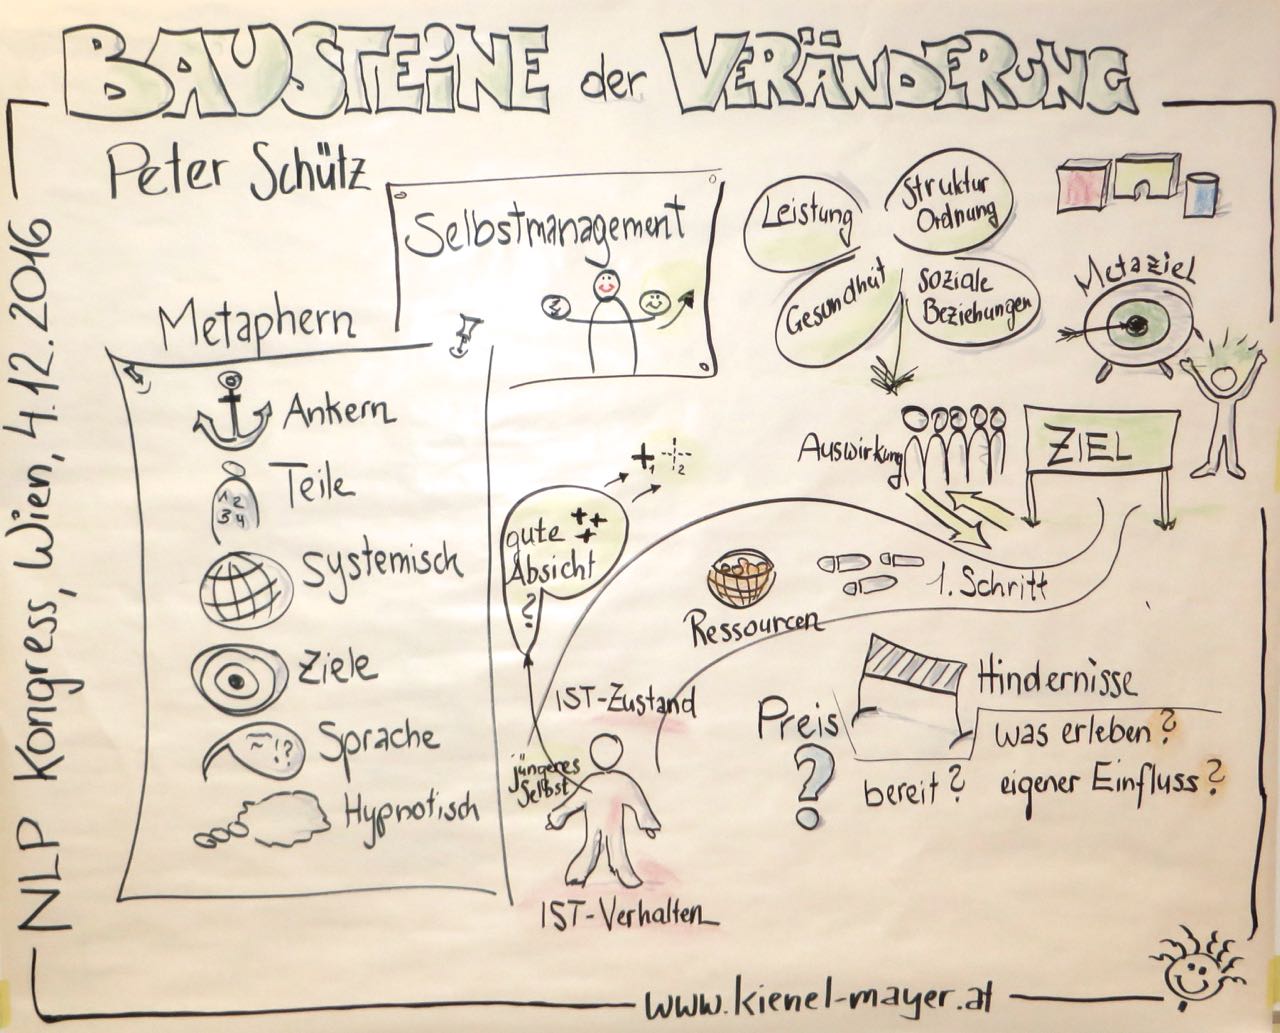 BAUSTEiNE der VERÄNDERUNG
Peter Schütz
NLP Kongress, Wien, 4.12.2016
Selbstmanagement
Leistung
Struktur
Ordnung
Gesundheit
soziale
Beziehungen
Metaziel
Metaphern
Ankern
Teile
1 2
3 4
systemisch
Ziele
~ !?
Sprache
Hypnotisch
Auswirkung
ZIEL
+1 +2
gute ++
+
Absicht
?
Ressourcen
1. Schritt
IST-Zustand
jüngeres
Selbst
IST-Verhalten
Preis
?
bereit?
Hindernisse
was erleben?
eigener Einfluss?
www.kienel-mayer.at